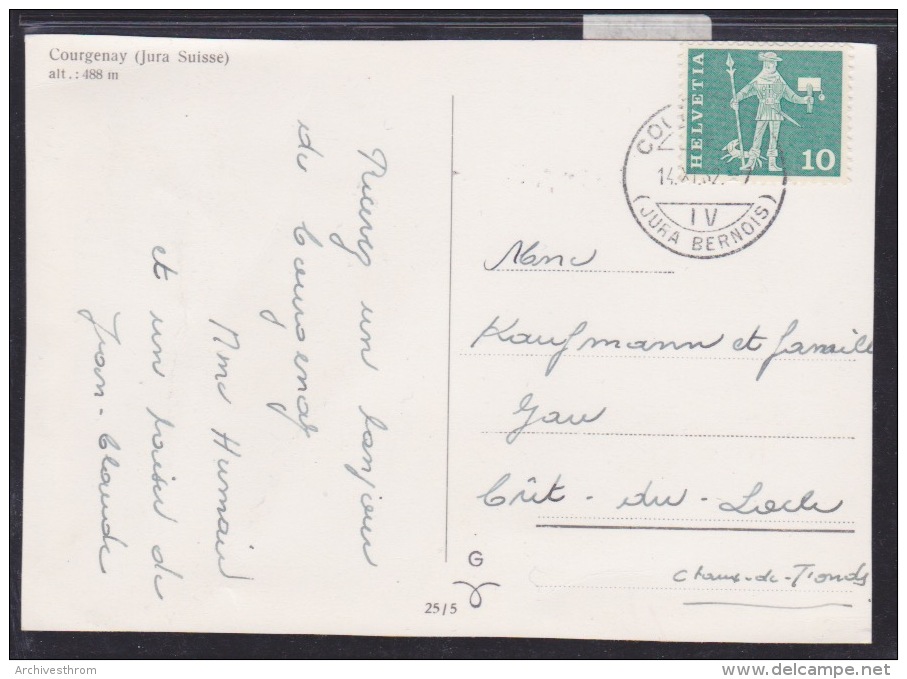 Courgenay (Jura Suisse)
alt.: 488 m
un bonjour
de Courgenay
Mme Humair
et un baiser de
Jean-Claude
HELVETIA
10
14.
IV
(JURA BERNOIS)
Mme
Kaufmann et famille
Crêt-du-Locle
Chaux-de-Fonds
G
25/5
Archivesthrom
www.delcampe.net